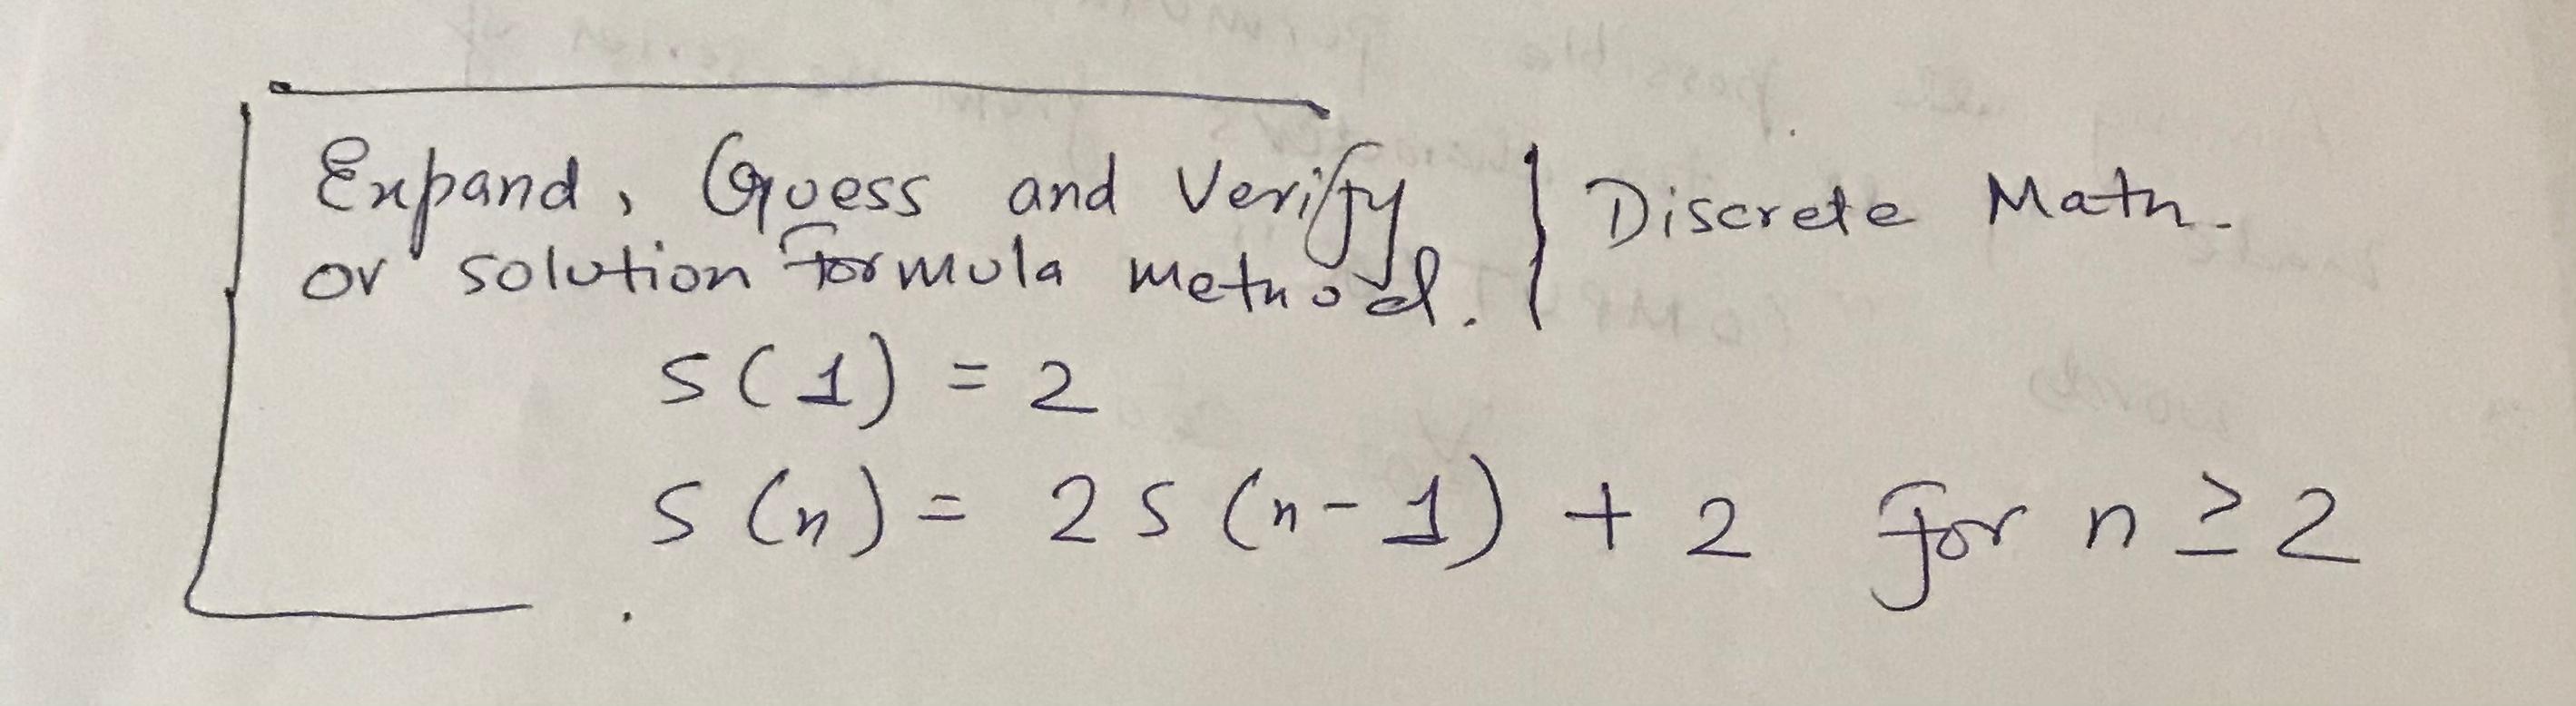 Expand, Guess and Verify | Discrete Math.
or solution formula method.
S(1) = 2
S(n) = 2S(n-1) + 2 for n ≥ 2